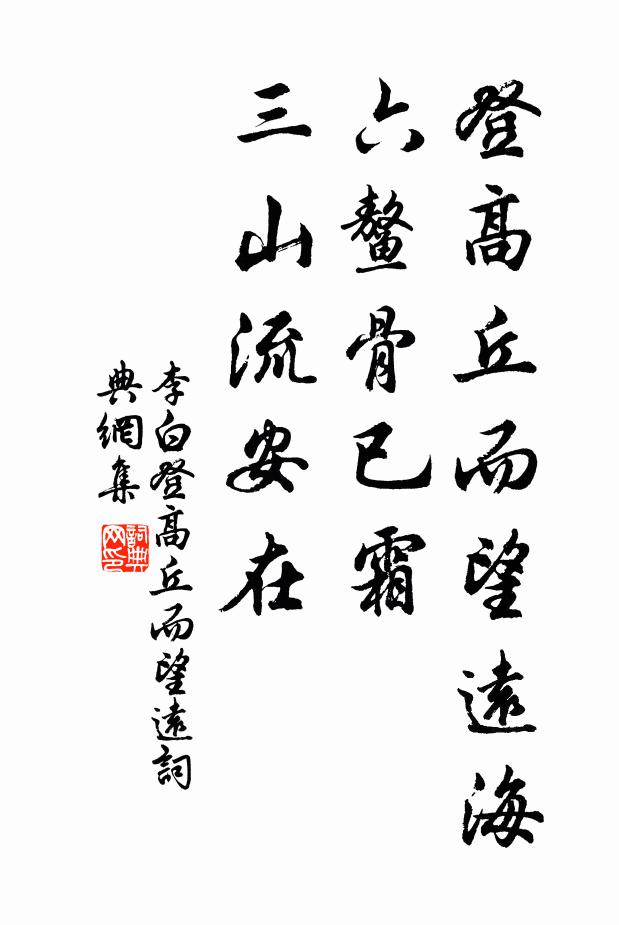 登高丘而望遠海
六鰲骨已霜
三山流安在
李白登高丘而望遠詞
典網集
詞典
网印